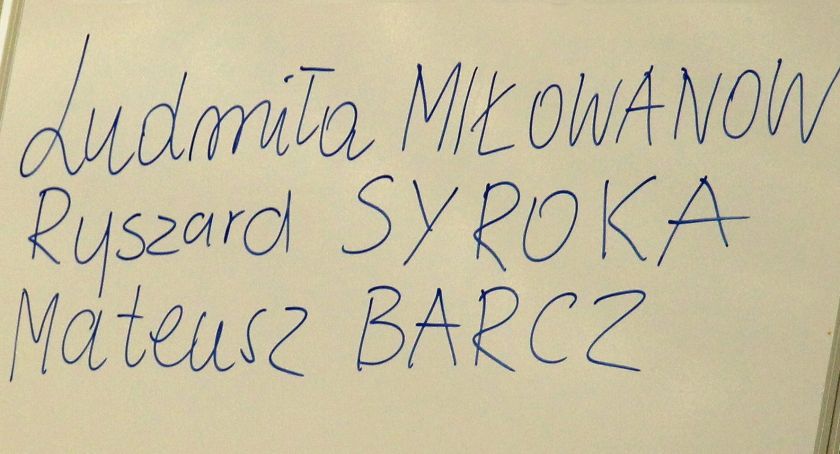 Ludmiła MIŁOWANOW
Ryszard SYROKA
Mateusz BARCZ